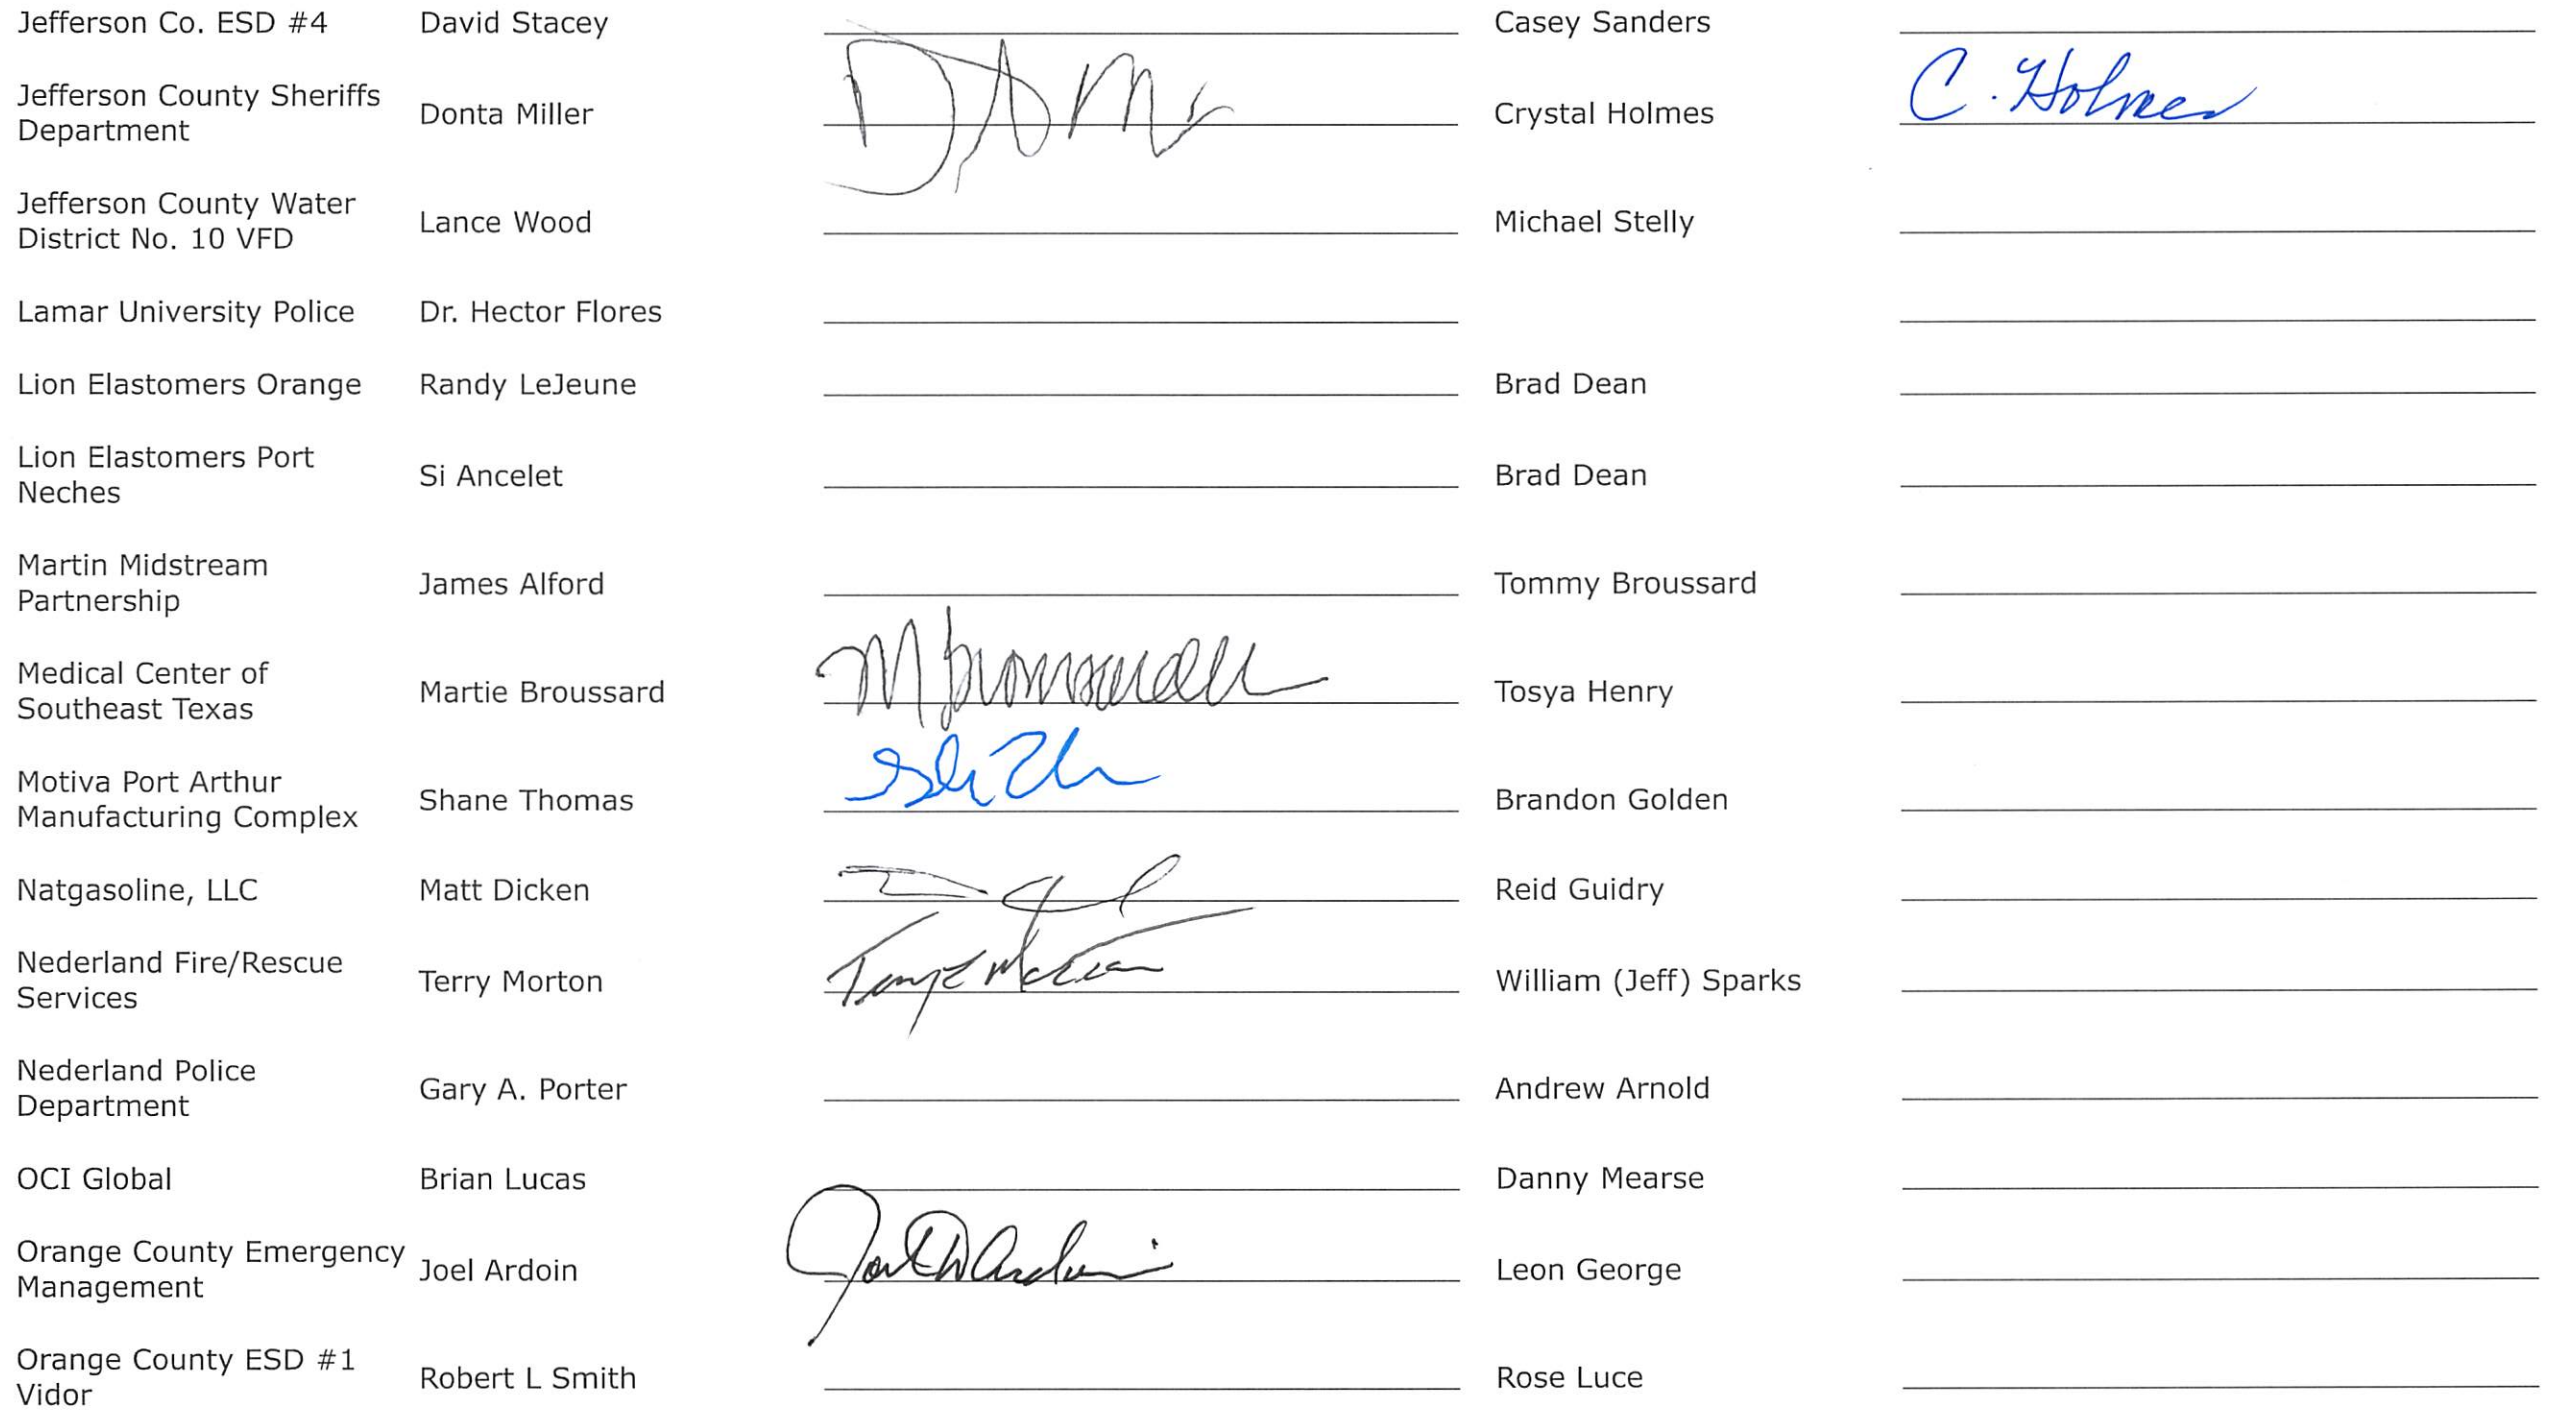 Jefferson Co. ESD #4 David Stacey Casey Sanders
Jefferson County Sheriffs
Department
Donta Miller Crystal Holmes C. Holmes
Jefferson County Water
District No. 10 VFD
Lance Wood Michael Stelly
Lamar University Police Dr. Hector Flores
Lion Elastomers Orange Randy LeJeune Brad Dean
Lion Elastomers Port
Neches
Si Ancelet Brad Dean
Martin Midstream
Partnership
James Alford Tommy Broussard
Medical Center of
Southeast Texas
Martie Broussard Tosya Henry
Motiva Port Arthur
Manufacturing Complex
Shane Thomas Brandon Golden
Natgasoline, LLC Matt Dicken Reid Guidry
Nederland Fire/Rescue
Services
Terry Morton William (Jeff) Sparks
Nederland Police
Department
Gary A. Porter Andrew Arnold
OCI Global Brian Lucas Danny Mearse
Orange County Emergency
Management
Joel Ardoin Leon George
Orange County ESD #1
Vidor
Robert L Smith Rose Luce